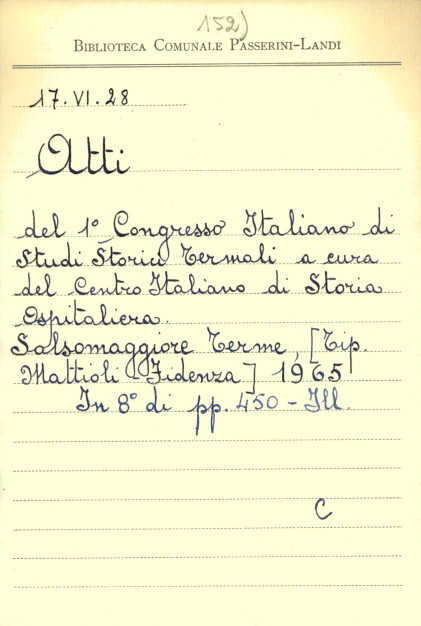 152)
BIBLIOTECA COMUNALE PASSERINI-LANDI
17.VI.28
Atti
del 1° Congresso Italiano di
Studi Storico Termali a cura
del Centro Italiano di Storia
Ospitaliera.
Salsomaggiore Terme, [Tip.
Mattioli - Fidenza] 1965
In 8° di pp. 450 - Ill.
C